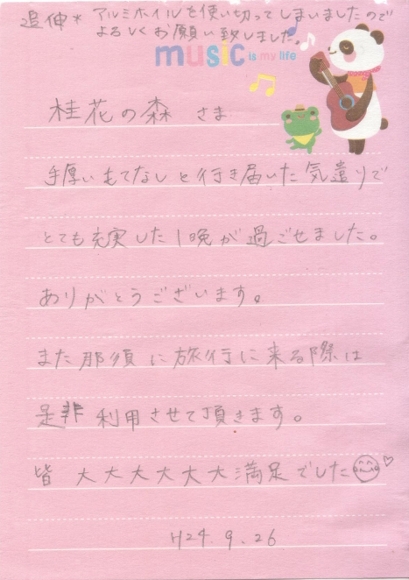 追伸* アルミホイルを使い切ってしまいましたので
よろしくお願い致しました。
music is my life
桂花の森 さま
手厚いもてなしと行き届いた気遣りで
とても充実した1晩が過ごせました。
ありがとうございます。
また那須に旅行に来る際は
是非利用させて頂きます。
皆 大大大大大大満足でした
H24.9.26